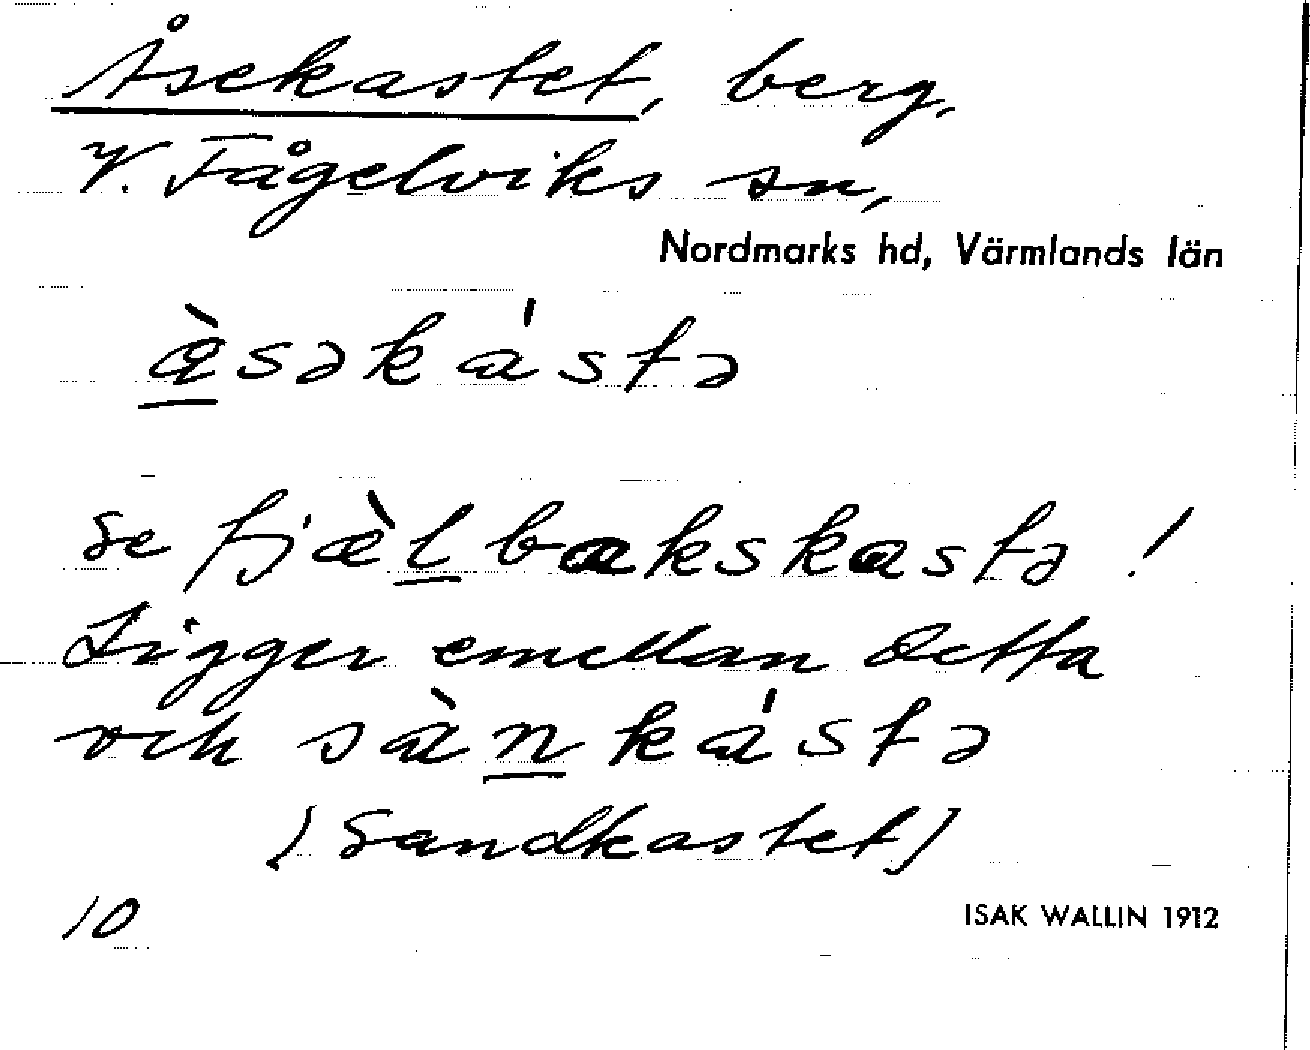 Åsekastet, berg,
V. Fågelviks sn,
Nordmarks hd, Värmlands län
å̀səkástə
se fjæ̀l̲bakskastə !
Ligger emellan detta
och sàn̲kástə
[Sandkastet]
10
ISAK WALLIN 1912